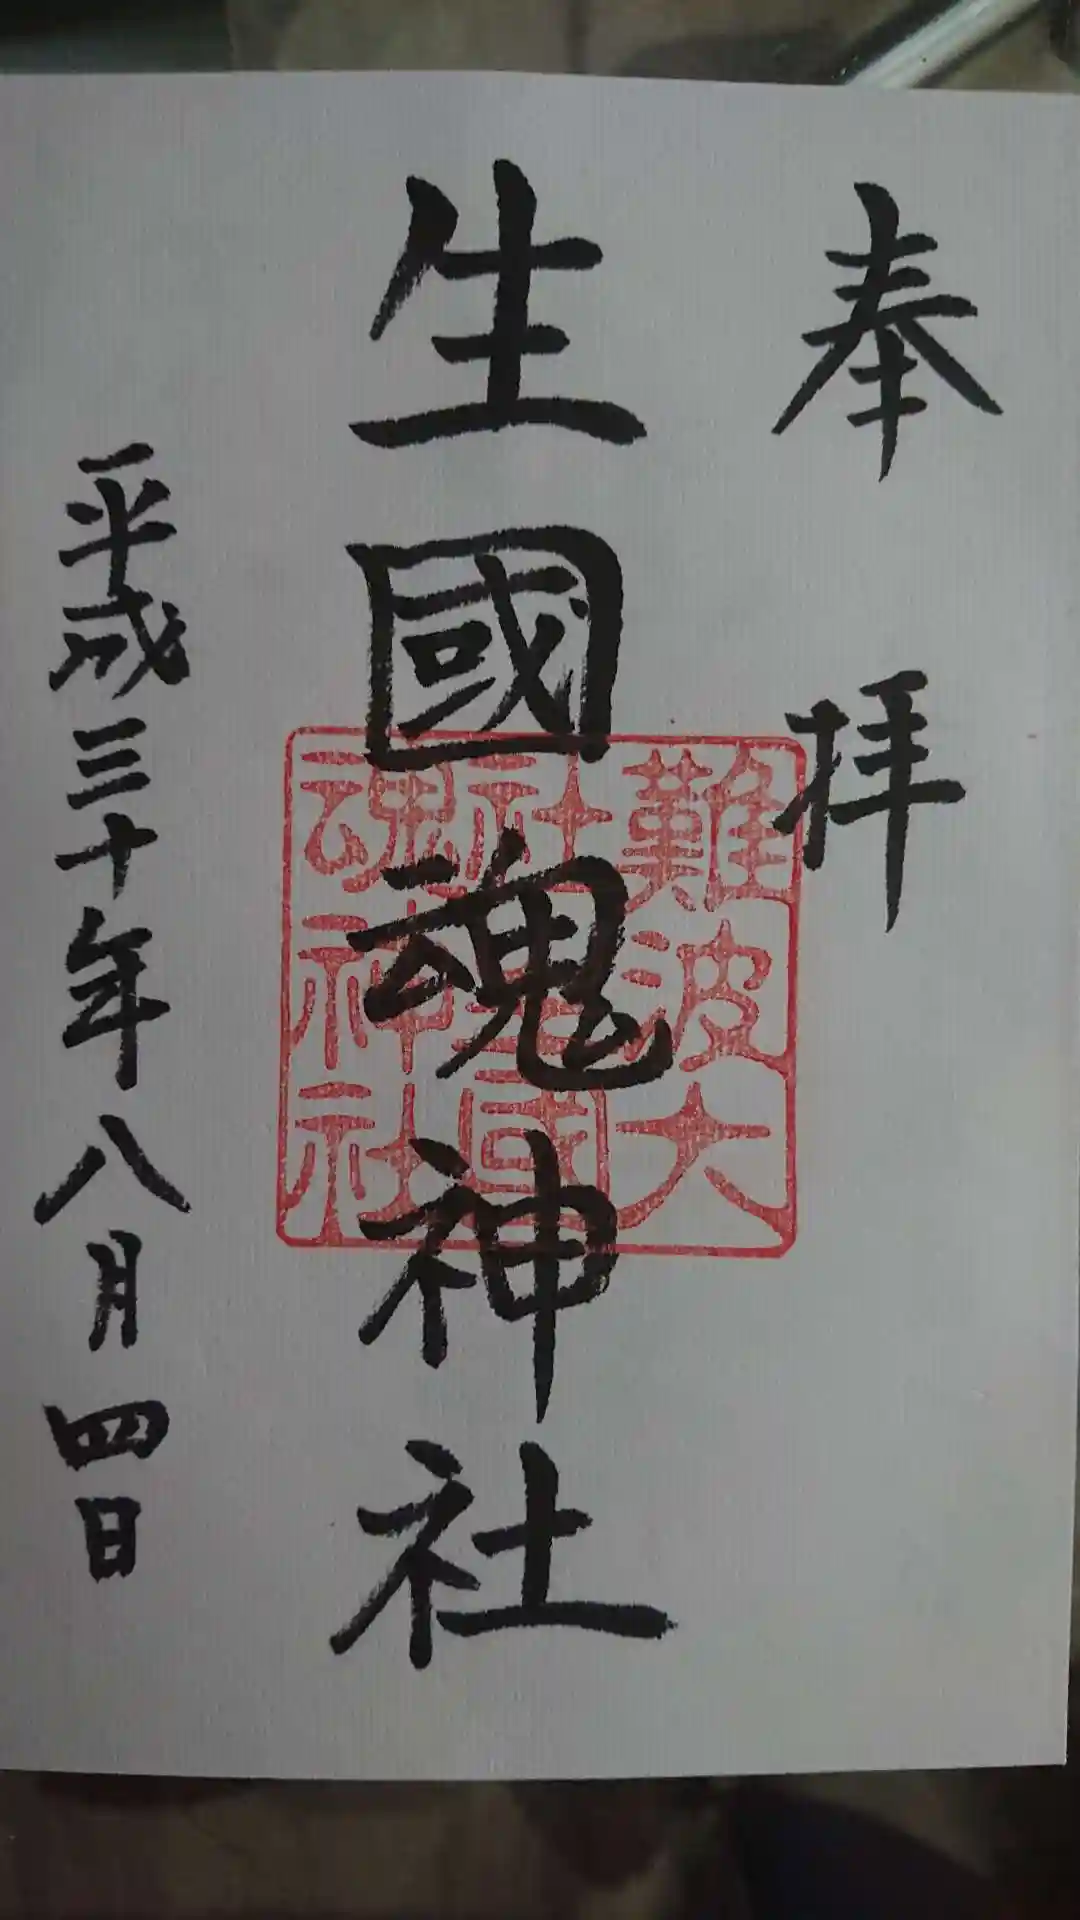 奉拝
生國魂神社
難波大
社生國
魂神社
平成三十年八月四日